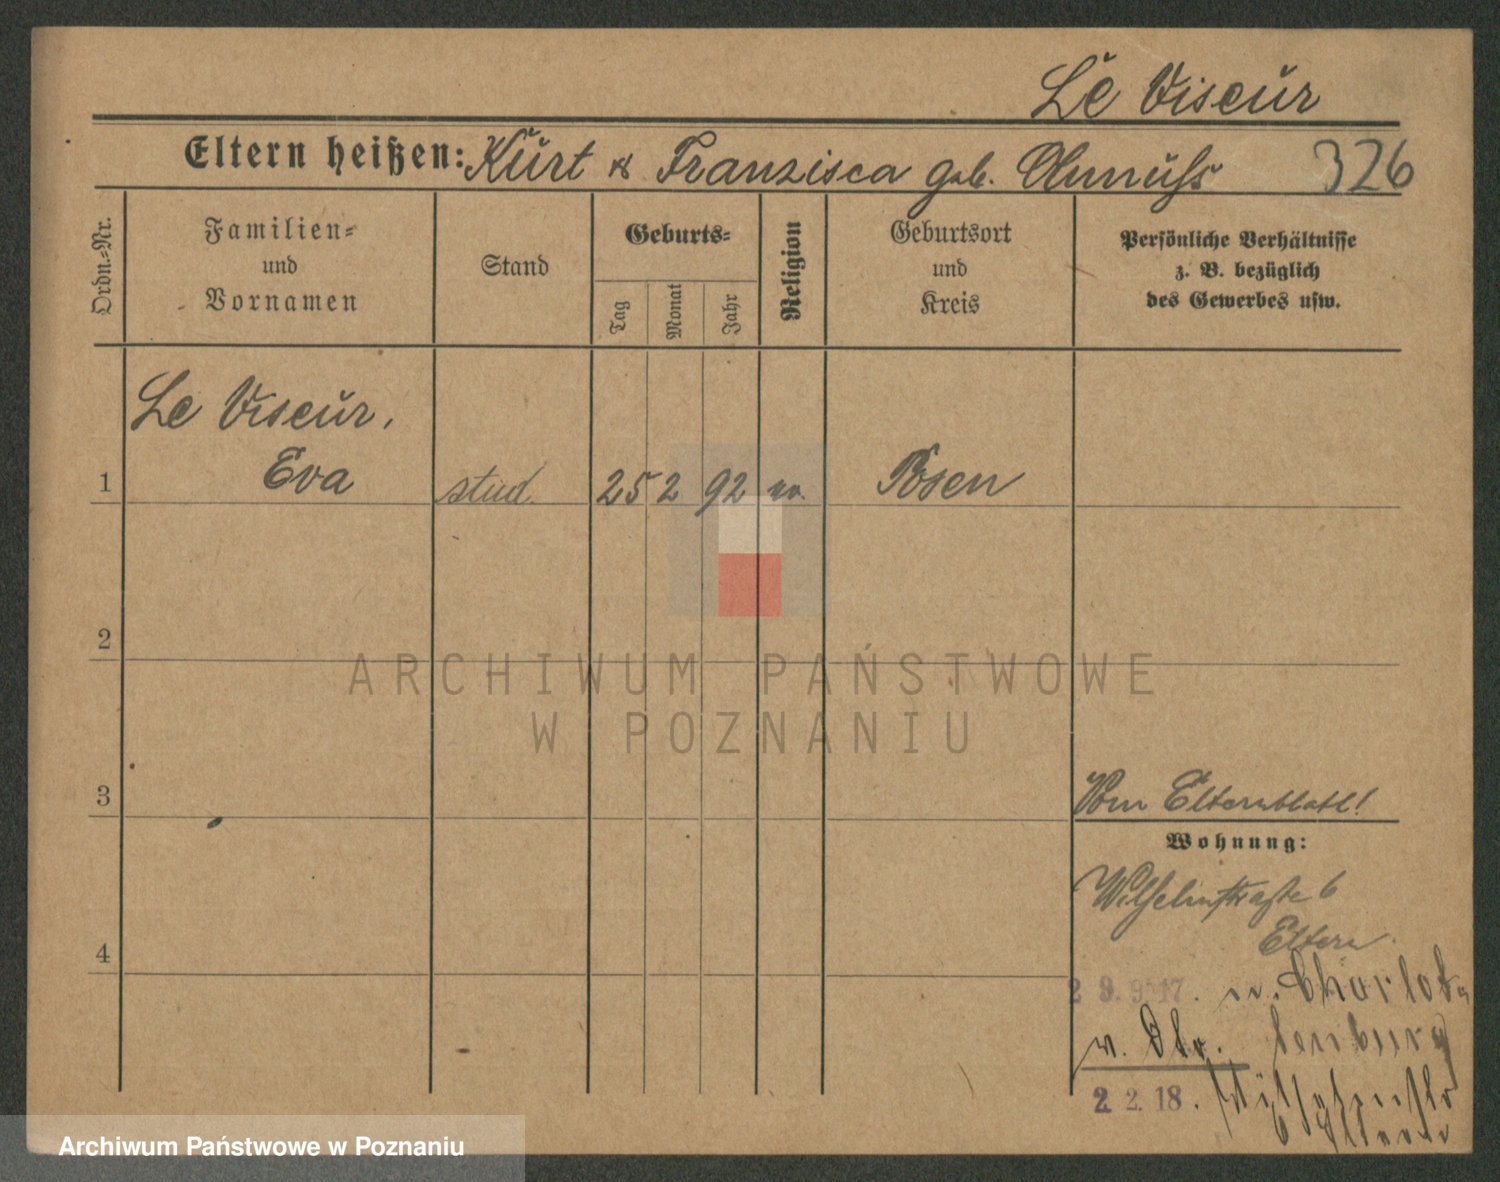 Le Viseur
Eltern heißen: Kurt & Franzisca geb. Annuß 326
Ordn.-Nr.
Familien-
und
Vornamen
Stand
Geburts-
Tag
Monat
Jahr
Religion
Geburtsort
und
Kreis
Persönliche Verhältnisse
z. B. bezüglich
des Gewerbes usw.
Le Viseur,
1 Eva stud. 25 2 92 ev. Posen
2
ARCHIWUM PAŃSTWOWE
W POZNANIU
3
Vom Elternblatt!
Wohnung:
Wilhelmstraße 6
Eltern
4
29.9.17. n. Charlot-
tenburg
2.2.18.
Archiwum Państwowe w Poznaniu